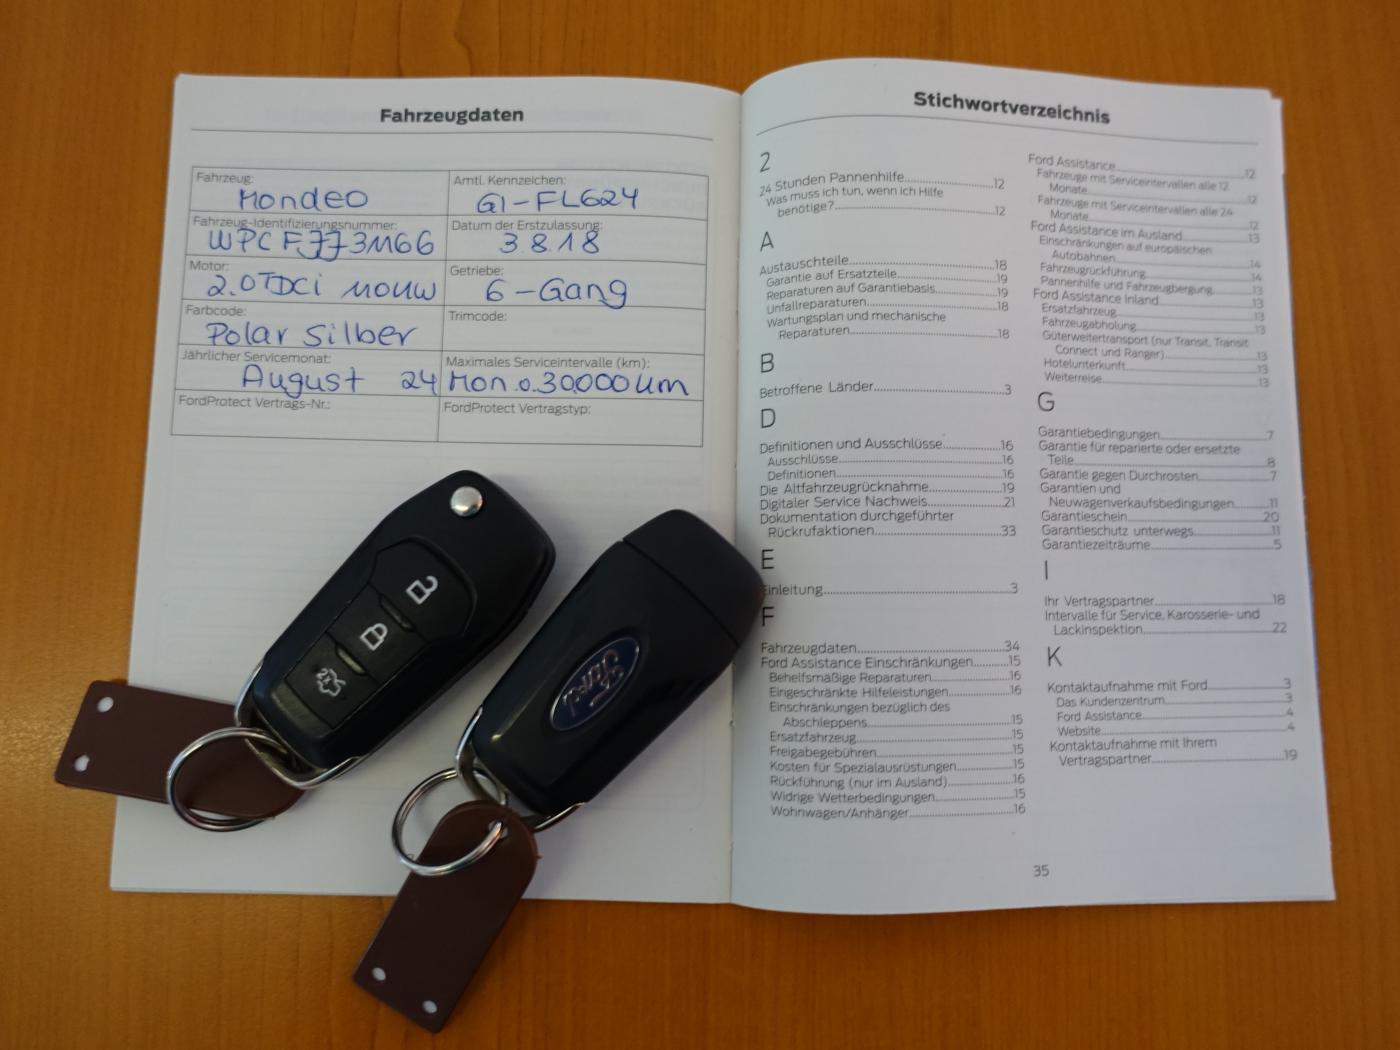 Fahrzeugdaten
Fahrzeug:
Mondeo
Amtl. Kennzeichen:
GI-FL624
Fahrzeug-Identifizierungsnummer:
WPCFJJ3M66
Datum der Erstzulassung:
3.8.18
Motor:
2.0TDCi 110KW
Getriebe:
6-Gang
Farbcode:
Polar Silber
Trimcode:
Jährlicher Servicemonat:
August 24
Maximales Serviceintervalle (km):
Mon. o. 30000 km
FordProtect Vertrags-Nr.:
FordProtect Vertragstyp:
Ford
Stichwortverzeichnis
2
24 Stunden Pannenhilfe 12
Was muss ich tun, wenn ich Hilfe
benötige? 12
A
Austauschteile 18
Garantie auf Ersatzteile 19
Reparaturen auf Garantiebasis 19
Unfallreparaturen 18
Wartungsplan und mechanische
Reparaturen 18
B
Betroffene Länder 3
D
Definitionen und Ausschlüsse 16
Ausschlüsse 16
Definitionen 16
Die Altfahrzeugrücknahme 19
Digitaler Service Nachweis 21
Dokumentation durchgeführter
Rückrufaktionen 33
E
Einleitung 3
F
Fahrzeugdaten 34
Ford Assistance Einschränkungen 15
Behelfsmäßige Reparaturen 16
Eingeschränkte Hilfeleistungen 16
Einschränkungen bezüglich des
Abschleppens 15
Ersatzfahrzeug 15
Freigabegebühren 15
Kosten für Spezialausrüstungen 15
Rückführung (nur im Ausland) 16
Widrige Wetterbedingungen 15
Wohnwagen/Anhänger 16
Ford Assistance 12
Fahrzeuge mit Serviceintervallen alle 12
Monate 12
Fahrzeuge mit Serviceintervallen alle 24
Monate 12
Ford Assistance im Ausland 13
Einschränkungen auf europäischen
Autobahnen 14
Fahrzeugrückführung 14
Pannenhilfe und Fahrzeugbergung 13
Ford Assistance Inland 13
Ersatzfahrzeug 13
Fahrzeugabholung 13
Güterweitertransport (nur Transit, Transit
Connect und Ranger) 13
Hotelunterkunft 13
Weiterreise 13
G
Garantiebedingungen 7
Garantie für reparierte oder ersetzte
Teile 8
Garantie gegen Durchrosten 7
Garantien und
Neuwagenverkaufsbedingungen 11
Garantieschein 20
Garantieschutz unterwegs 11
Garantiezeiträume 5
I
Ihr Vertragspartner 18
Intervalle für Service, Karosserie- und
Lackinspektion 22
K
Kontaktaufnahme mit Ford 3
Das Kundenzentrum 3
Ford Assistance 4
Website 4
Kontaktaufnahme mit Ihrem
Vertragspartner 19
35